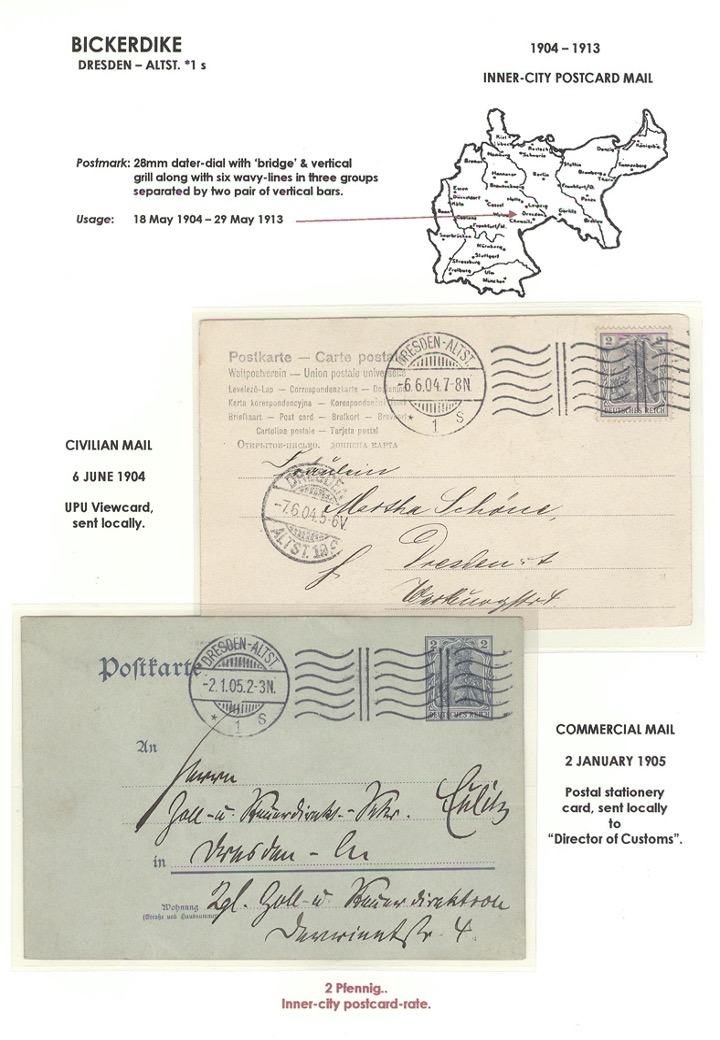 BICKERDIKE
DRESDEN – ALTST. *1 s
1904 – 1913
INNER-CITY POSTCARD MAIL
Postmark: 28mm dater-dial with ‘bridge’ & vertical
grill along with six wavy-lines in three groups
separated by two pair of vertical bars.
Usage: 18 May 1904 – 29 May 1913
Kiel
Lübeck
Rostock
Schwerin
Bremen
Hannover
Braunschweig
Berlin
Stettin
Danzig
Königsberg
Bromberg
Thorn
Frankfurt/O.
Posen
Essen
Düsseldorf
Köln
Cassel
Halle
Leipzig
Dresden
Chemnitz
Görlitz
Breslau
Frankfurt/M.
Saarbrücken
Nürnberg
Stuttgart
Strassburg
Freiburg
Ulm
München
CIVILIAN MAIL
6 JUNE 1904
UPU Viewcard,
sent locally.
Postkarte — Carte postale
Weltpostverein — Union postale universelle
Levelező-Lap — Correspondenzkarte —
Karta korespondencyjna —
Briefkaart — Post card — Brefkort —
Cartolina postale — Tarjeta postal
DRESDEN-ALTST.
-6.6.04.7-8N
* 1 S
2 2
DEUTSCHES REICH
Fräulein
DRESDEN
-7.6.04.5-6V.
ALTST.
Martha Schöne,
Dresden-A
Postkarte
DRESDEN-ALTST.
-2.1.05.2-3N.
* 1 S
2 2
DEUTSCHES REICH
An
Herrn
Zoll- u. Steuerdirekt.-Sekr.
in Dresden -
Wohnung
(Straße und Hausnummer)
Kgl. Zoll- u. Steuerdirektion
4.
COMMERCIAL MAIL
2 JANUARY 1905
Postal stationery
card, sent locally
to
“Director of Customs”.
2 Pfennig..
Inner-city postcard-rate.